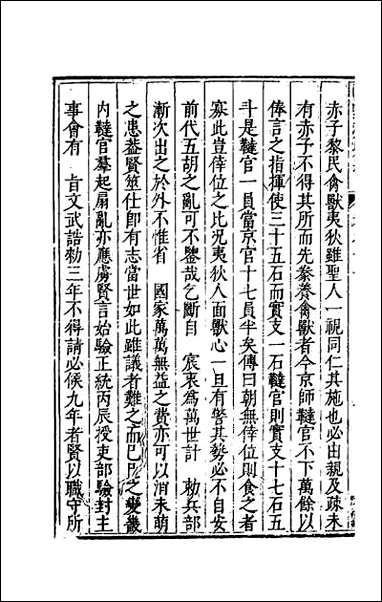 赤子黎民禽獸夷狄雖聖人一視同仁其施也必由親及疎未
有赤子不得其所而先豢養禽獸者今京師韃官不下萬餘以
俸言之指揮使三十五石而實支一石韃官則實支十七石五
斗是韃官一員當京官十七員半矣傳曰朝無倖位則食之者
寡此豈倖位之比况夷狄人面獸心一旦有警其勢必不自安
前代五胡之亂可不鑒哉乞斷自 宸衷為萬世計 勑兵部
漸次出之於外不惟省 國家萬萬無益之費亦可以消未萌
之患蓋賢筮仕即有志當世如此雖議者難之而已巳之變畿
内韃官羣起扇亂亦應虜賢言始驗正統丙辰授吏部驗封主
事會有 旨文武誥勑三年不得請必候九年者賢以職守所